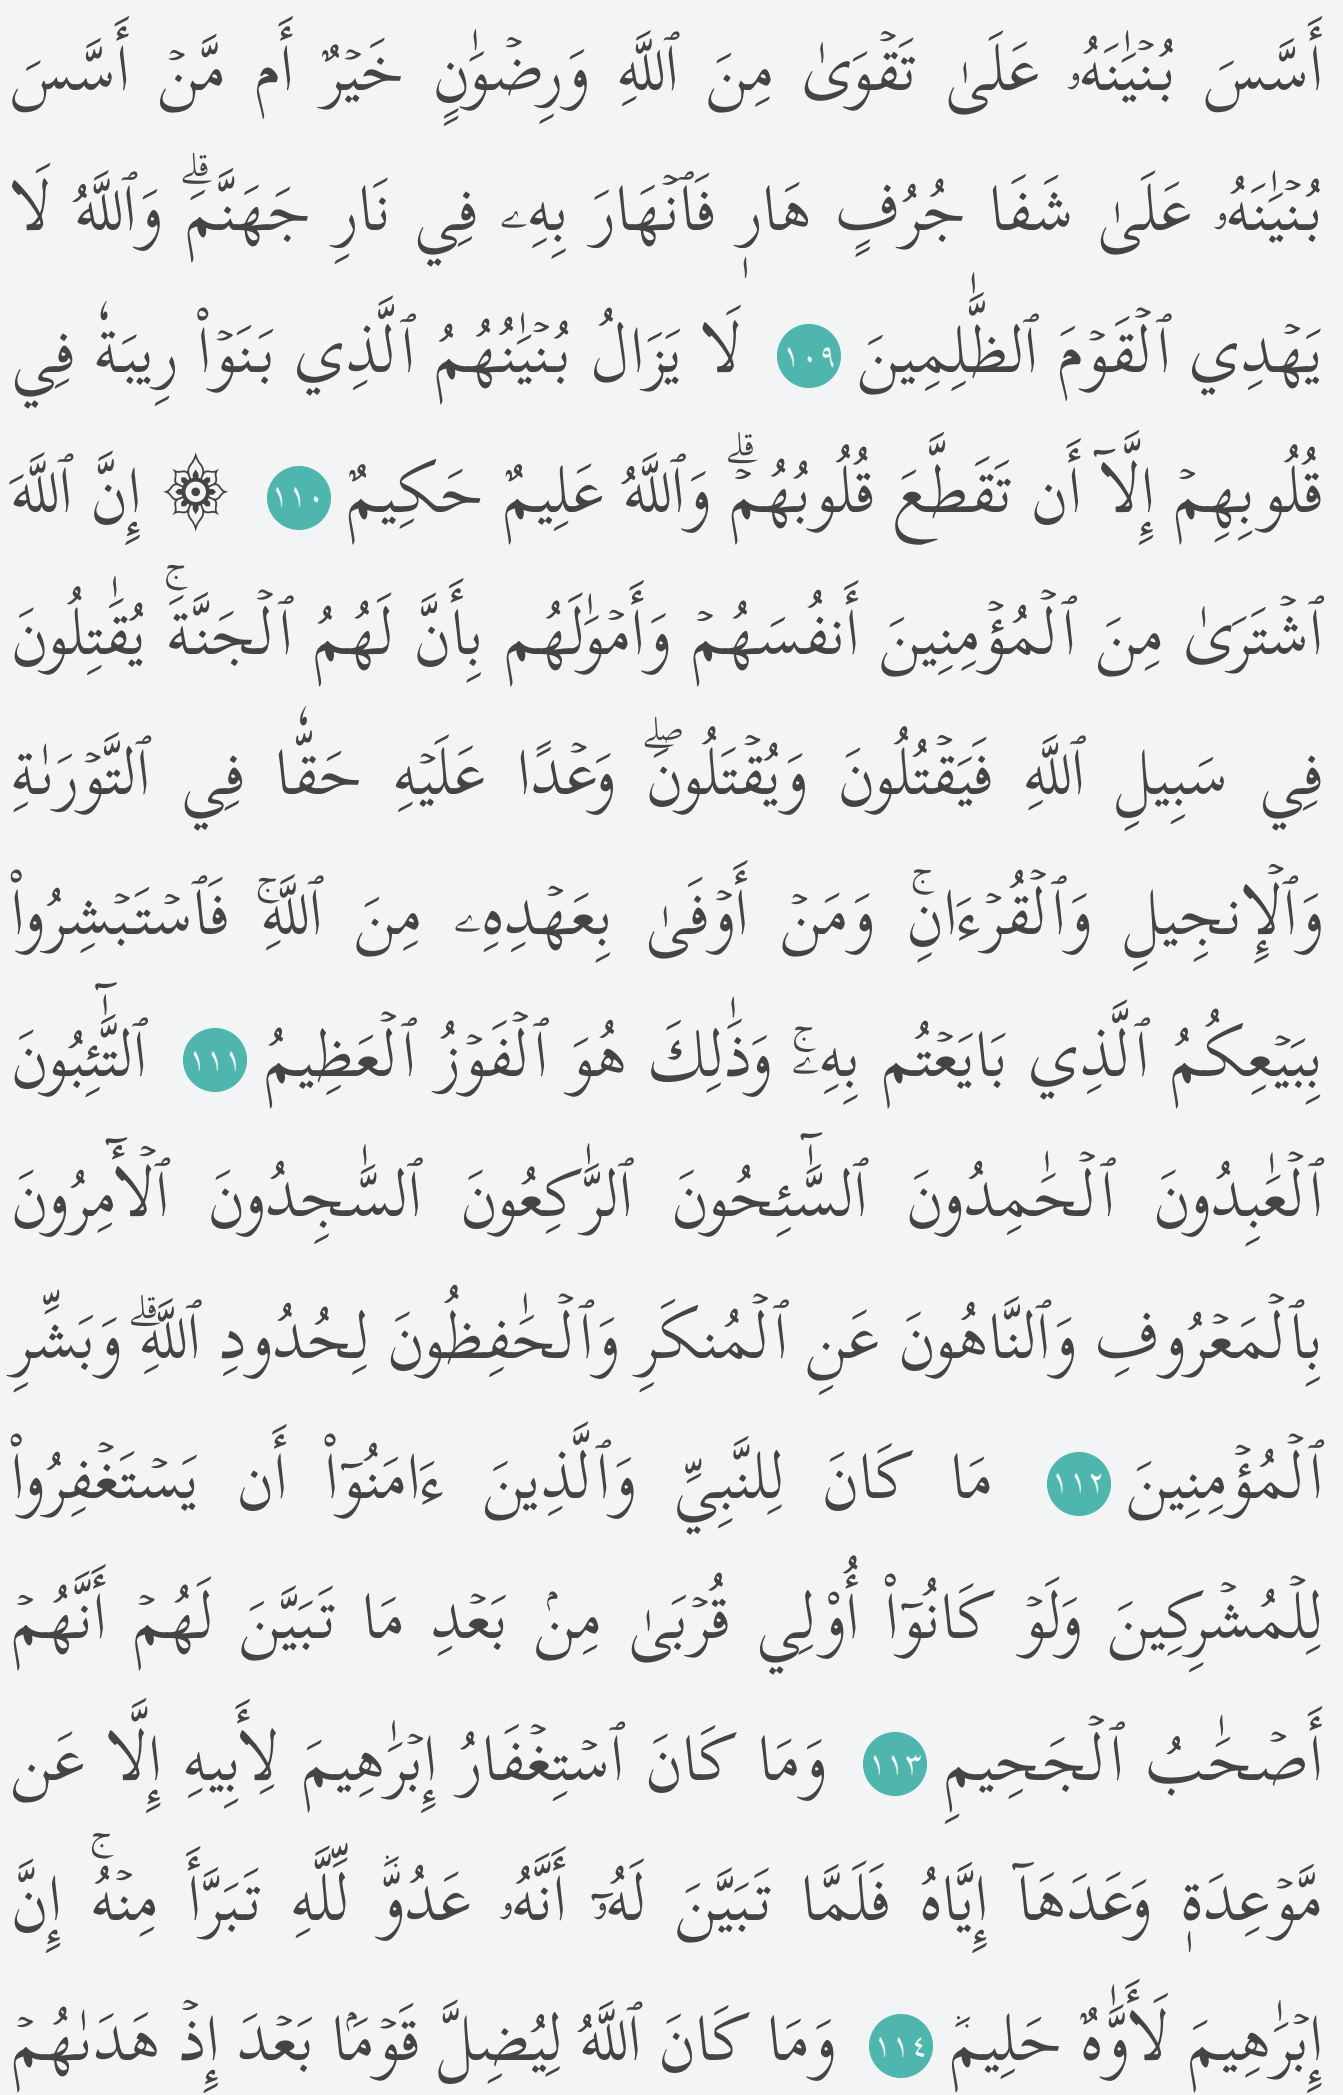 أَسَّسَ بُنۡيَٰنَهُۥ عَلَىٰ تَقۡوَىٰ مِنَ ٱللَّهِ وَرِضۡوَٰنٍ خَيۡرٌ أَم مَّنۡ أَسَّسَ
بُنۡيَٰنَهُۥ عَلَىٰ شَفَا جُرُفٍ هَارٖ فَٱنۡهَارَ بِهِۦ فِي نَارِ جَهَنَّمَۗ وَٱللَّهُ لَا
يَهۡدِي ٱلۡقَوۡمَ ٱلظَّٰلِمِينَ ١٠٩ لَا يَزَالُ بُنۡيَٰنُهُمُ ٱلَّذِي بَنَوۡاْ رِيبَةٗ فِي
قُلُوبِهِمۡ إِلَّآ أَن تَقَطَّعَ قُلُوبُهُمۡۗ وَٱللَّهُ عَلِيمٌ حَكِيمٌ ١١٠ ۞ إِنَّ ٱللَّهَ
ٱشۡتَرَىٰ مِنَ ٱلۡمُؤۡمِنِينَ أَنفُسَهُمۡ وَأَمۡوَٰلَهُم بِأَنَّ لَهُمُ ٱلۡجَنَّةَۚ يُقَٰتِلُونَ
فِي سَبِيلِ ٱللَّهِ فَيَقۡتُلُونَ وَيُقۡتَلُونَۖ وَعۡدًا عَلَيۡهِ حَقّٗا فِي ٱلتَّوۡرَىٰةِ
وَٱلۡإِنجِيلِ وَٱلۡقُرۡءَانِۚ وَمَنۡ أَوۡفَىٰ بِعَهۡدِهِۦ مِنَ ٱللَّهِۚ فَٱسۡتَبۡشِرُواْ
بِبَيۡعِكُمُ ٱلَّذِي بَايَعۡتُم بِهِۦۚ وَذَٰلِكَ هُوَ ٱلۡفَوۡزُ ٱلۡعَظِيمُ ١١١ ٱلتَّٰٓئِبُونَ
ٱلۡعَٰبِدُونَ ٱلۡحَٰمِدُونَ ٱلسَّٰٓئِحُونَ ٱلرَّٰكِعُونَ ٱلسَّٰجِدُونَ ٱلۡأٓمِرُونَ
بِٱلۡمَعۡرُوفِ وَٱلنَّاهُونَ عَنِ ٱلۡمُنكَرِ وَٱلۡحَٰفِظُونَ لِحُدُودِ ٱللَّهِۗ وَبَشِّرِ
ٱلۡمُؤۡمِنِينَ ١١٢ مَا كَانَ لِلنَّبِيِّ وَٱلَّذِينَ ءَامَنُوٓاْ أَن يَسۡتَغۡفِرُواْ
لِلۡمُشۡرِكِينَ وَلَوۡ كَانُوٓاْ أُوْلِي قُرۡبَىٰ مِنۢ بَعۡدِ مَا تَبَيَّنَ لَهُمۡ أَنَّهُمۡ
أَصۡحَٰبُ ٱلۡجَحِيمِ ١١٣ وَمَا كَانَ ٱسۡتِغۡفَارُ إِبۡرَٰهِيمَ لِأَبِيهِ إِلَّا عَن
مَّوۡعِدَةٖ وَعَدَهَآ إِيَّاهُ فَلَمَّا تَبَيَّنَ لَهُۥٓ أَنَّهُۥ عَدُوّٞ لِّلَّهِ تَبَرَّأَ مِنۡهُۚ إِنَّ
إِبۡرَٰهِيمَ لَأَوَّٰهٌ حَلِيمٞ ١١٤ وَمَا كَانَ ٱللَّهُ لِيُضِلَّ قَوۡمَۢا بَعۡدَ إِذۡ هَدَىٰهُمۡ